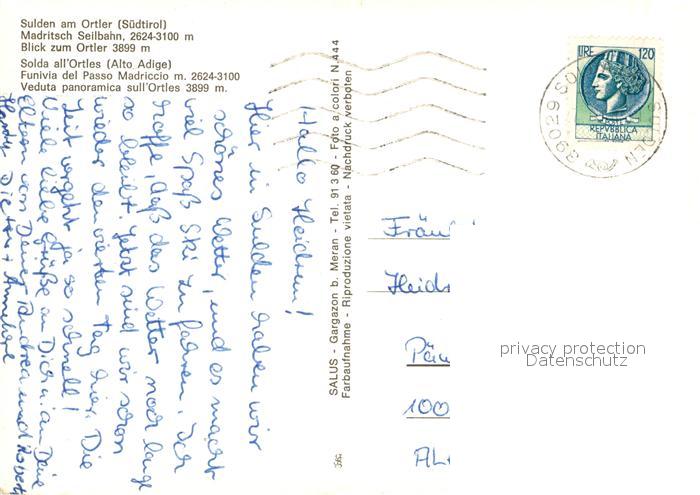 Sulden am Ortler (Südtirol)
Madritsch Seilbahn, 2624-3100 m
Blick zum Ortler 3899 m
Solda all'Ortles (Alto Adige)
Funivia del Passo Madriccio m. 2624-3100
Veduta panoramica sull'Ortles 3899 m.
Hallo Heidrun!
Hier in Sulden haben wir
schönes Wetter, und es macht
viel Spaß Ski zu fahren. Ich
hoffe, daß das Wetter noch lange
so bleibt. Jetzt sind wir schon
wieder den vierten Tag hier. Die
Zeit vergeht ja so schnell!
Viele liebe Grüße an Dich u. an Deine
Eltern von Deiner Andrea und Robert
SALUS - Gargazon b. Meran - Tel. 91 3 60 - Foto a colori N. 444
Farbaufnahme - Riproduzione vietata - Nachdruck verboten
LIRE 120
REPVBBLICA
ITALIANA
39029 SO
SULDEN
Fräu
Heidr
100
privacy protection
Datenschutz